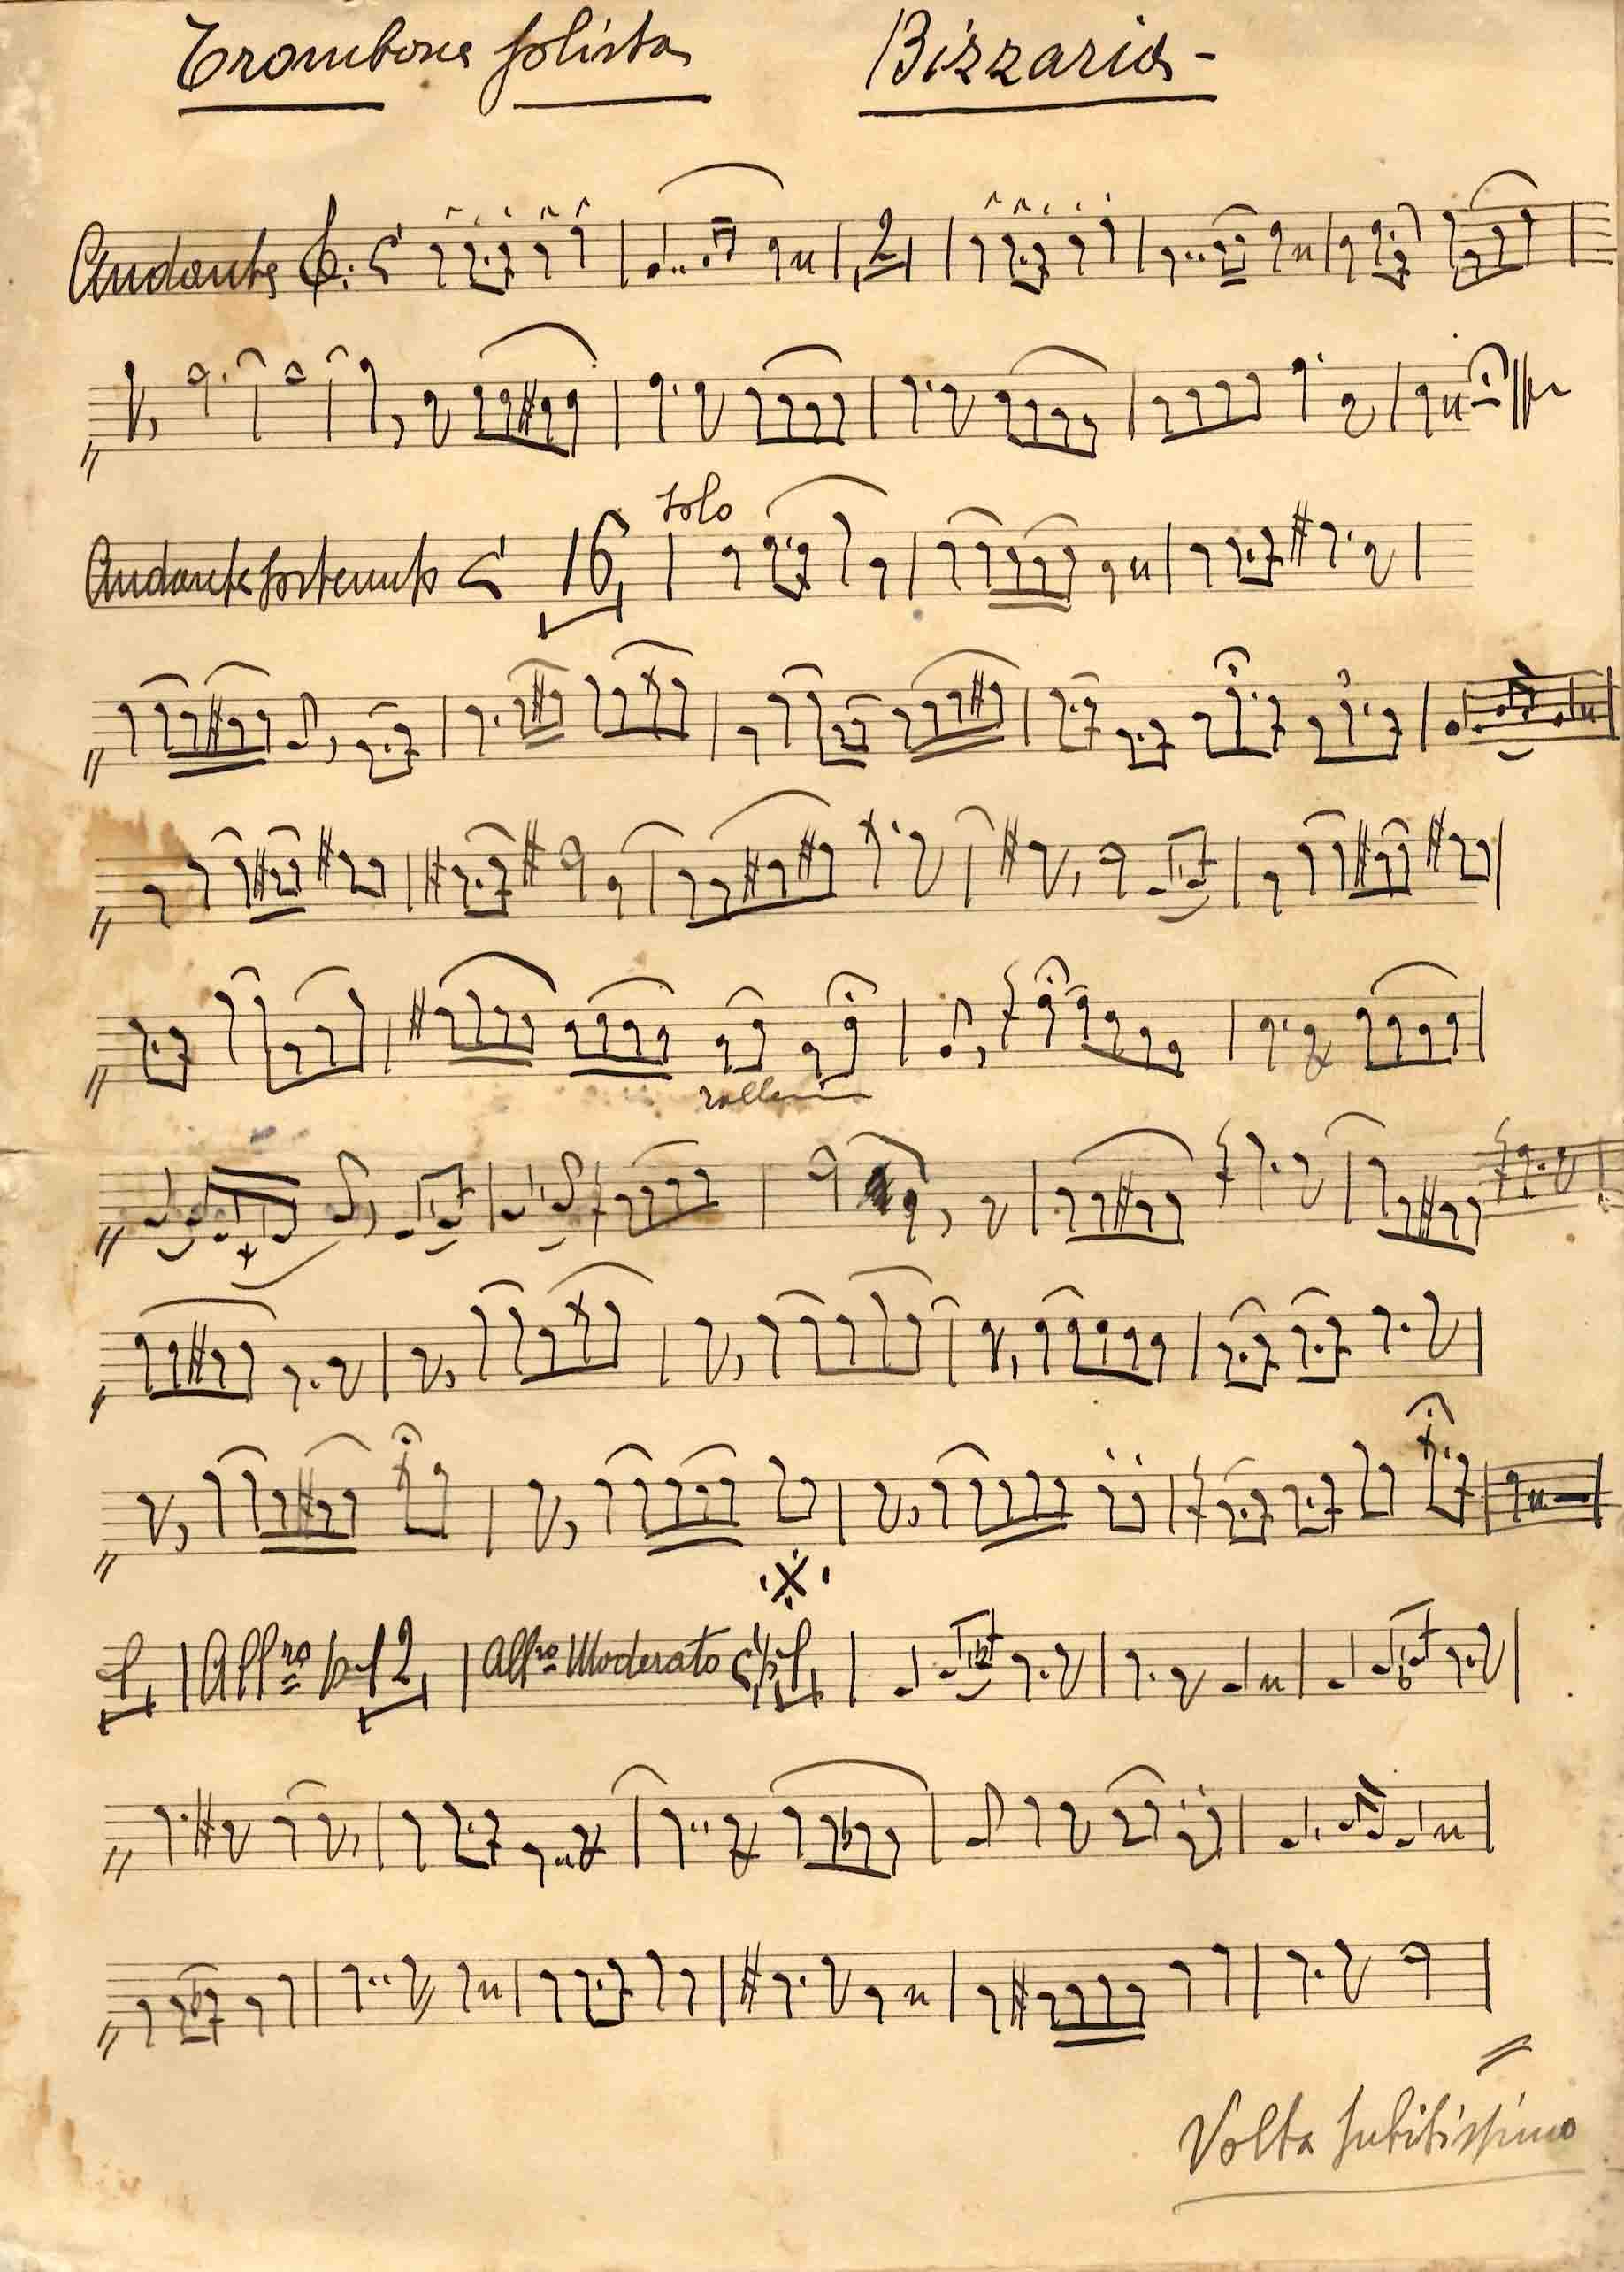 Trombone solista Bizzaria -
Andante 2
Andante sostenuto 16 solo
rallen
1 All.ro 12 All.ro Moderato 1
Volta subitissimo